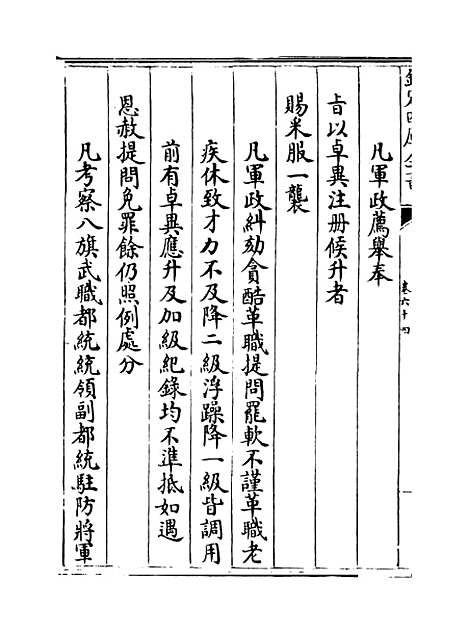 欽定四庫全書
卷六十四
凡軍政薦舉奉
旨以卓異注册候升者
賜米服一襲
凡軍政糾劾貪酷革職提問罷軟不謹革職老
疾休致才力不及降二級浮躁降一級皆調用
前有卓異應升及加級紀錄均不準抵如遇
恩赦提問免罪餘仍照例處分
凡考察八旗武職都統統領副都統駐防將軍